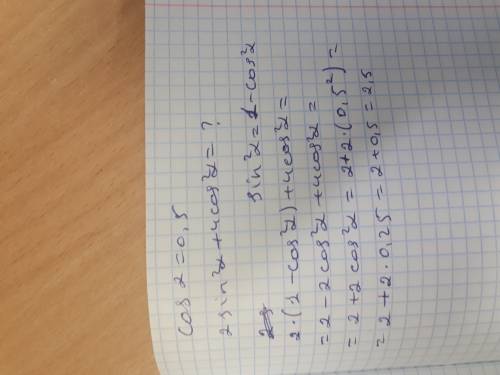 cos α = 0,5
2 sin²α + 4 cos²α = ?
sin²α = 1 - cos²α
2·(1 - cos²α) + 4 cos²α =
= 2 - 2 cos²α + 4 cos²α =
= 2 + 2 cos²α = 2 + 2·(0,5²) =
= 2 + 2·0,25 = 2 + 0,5 = 2,5